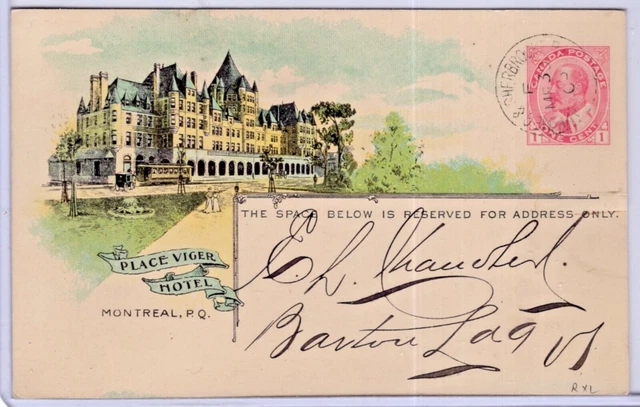 SHERBROOKE
CANADA POSTAGE
1 ONE CENT 1
THE SPACE BELOW IS RESERVED FOR ADDRESS ONLY.
PLACE VIGER
HOTEL
MONTREAL, P.Q.
E. L. Chandler.
Barton Vt
RXL